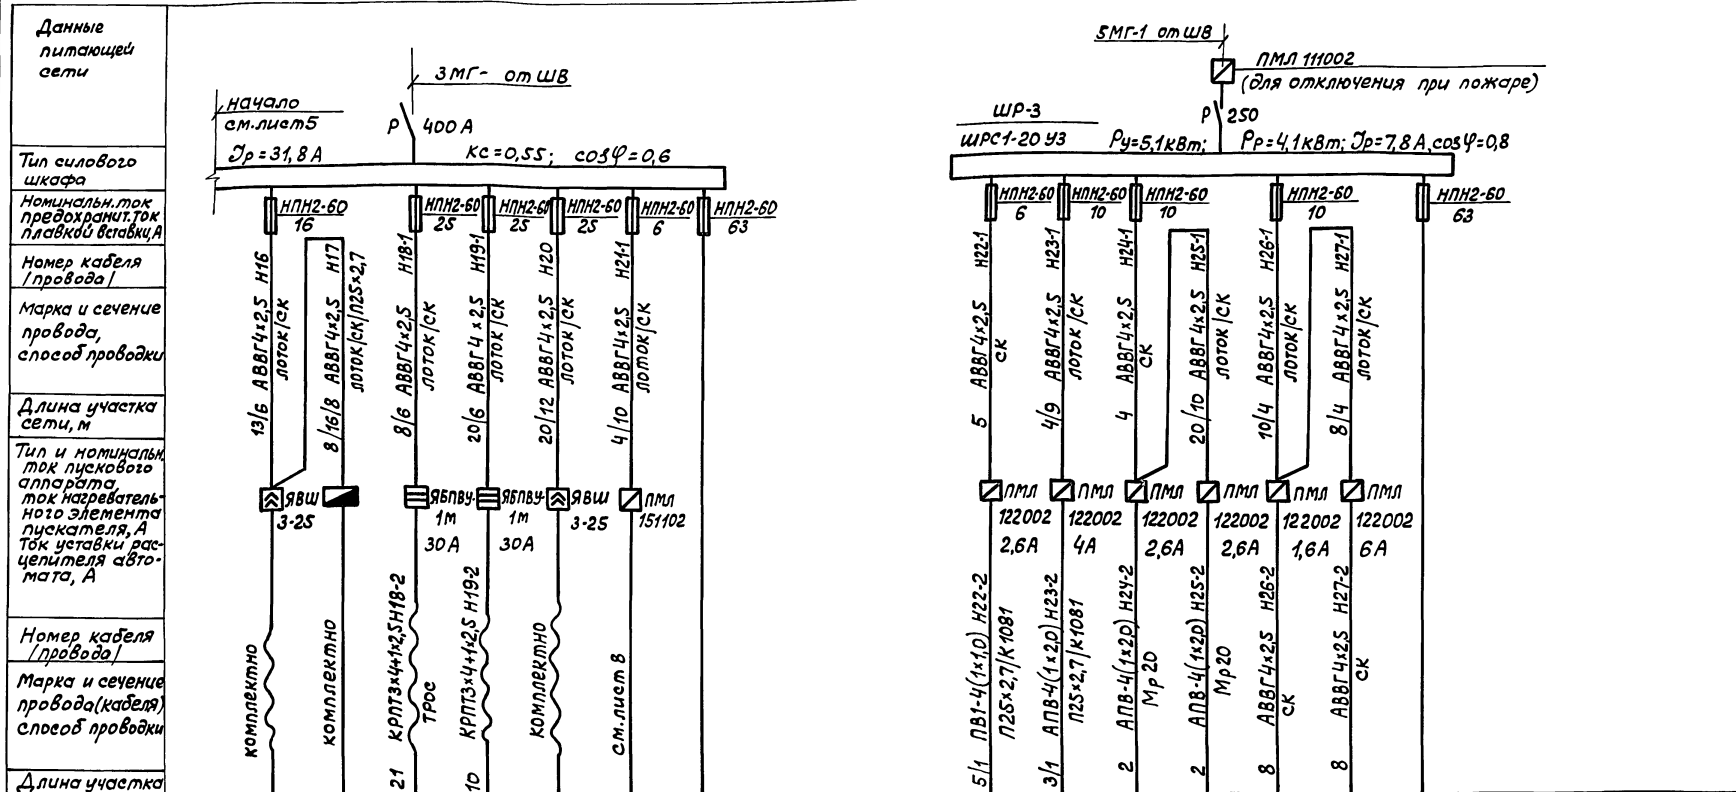 Данные
питающей
сети
Тип силового
шкафа
Номинальн. ток
предохранит. ток
плавкой вставки, А
Номер кабеля
/провода/
Марка и сечение
провода,
способ проводки
Длина участка
сети, м
Тип и номинальн.
ток пускового
аппарата,
ток нагреватель-
ного элемента
пускателя, А
Ток уставки рас-
цепителя авто-
мата, А
Номер кабеля
/провода/
Марка и сечение
провода (кабеля)
способ проводки
Длина участка
начало
см. лист 5
3МГ- от ШВ
Р 400 А
Jр=31,8 А Кс=0,55; cosφ=0,6
НПН2-60
16
НПН2-60
25
НПН2-60
25
НПН2-60
25
НПН2-60
6
НПН2-60
63
13/6 АВВГ 4×2,5 Н16
лоток/ск
8/16/8 АВВГ 4×2,5 Н17
лоток/ск/П25×2,7
8/6 АВВГ 4×2,5 Н18-1
лоток/ск
20/6 АВВГ 4×2,5 Н19-1
лоток/ск
20/12 АВВГ 4×2,5 Н20
лоток/ск
4/10 АВВГ 4×2,5 Н21-1
лоток/ск
ЯВШ
3-25
ЯБПВУ-
1м
30А
ЯБПВУ-
1м
30А
ЯВШ
3-25
ПМЛ
151102
комплектно
комплектно
21 КРПТ3×4+1×2,5 Н18-2
трос
10 КРПТ3×4+1×2,5 Н19-2
комплектно
см. лист 8
5МГ-1 от ШВ
ПМЛ 111002
(для отключения при пожаре)
Р 250
ШР-3
ШРС1-20 У3 Ру=5,1кВт; Рр=4,1кВт; Jр=7,8 А, cosφ=0,8
НПН2-60
6
НПН2-60
10
НПН2-60
10
НПН2-60
10
НПН2-60
63
5 АВВГ 4×2,5 Н22-1
ск
4/9 АВВГ 4×2,5 Н23-1
лоток/ск
4 АВВГ 4×2,5 Н24-1
ск
20/10 АВВГ 4×2,5 Н25-1
лоток/ск
10/4 АВВГ 4×2,5 Н26-1
лоток/ск
8/4 АВВГ 4×2,5 Н27-1
лоток/ск
ПМЛ
122002
2,6А
ПМЛ
122002
4А
ПМЛ
122002
2,6А
ПМЛ
122002
2,6А
ПМЛ
122002
1,6А
ПМЛ
122002
6А
5/1 ПВ1-4(1×1,0) Н22-2
П25×2,7/К1081
3/1 АПВ-4(1×2,0) Н23-2
П25×2,7/К1081
2 АПВ-4(1×2,0) Н24-2
Мр20
2 АПВ-4(1×2,0) Н25-2
Мр20
8 АВВГ 4×2,5 Н26-2
ск
8 АВВГ 4×2,5 Н27-2
ск